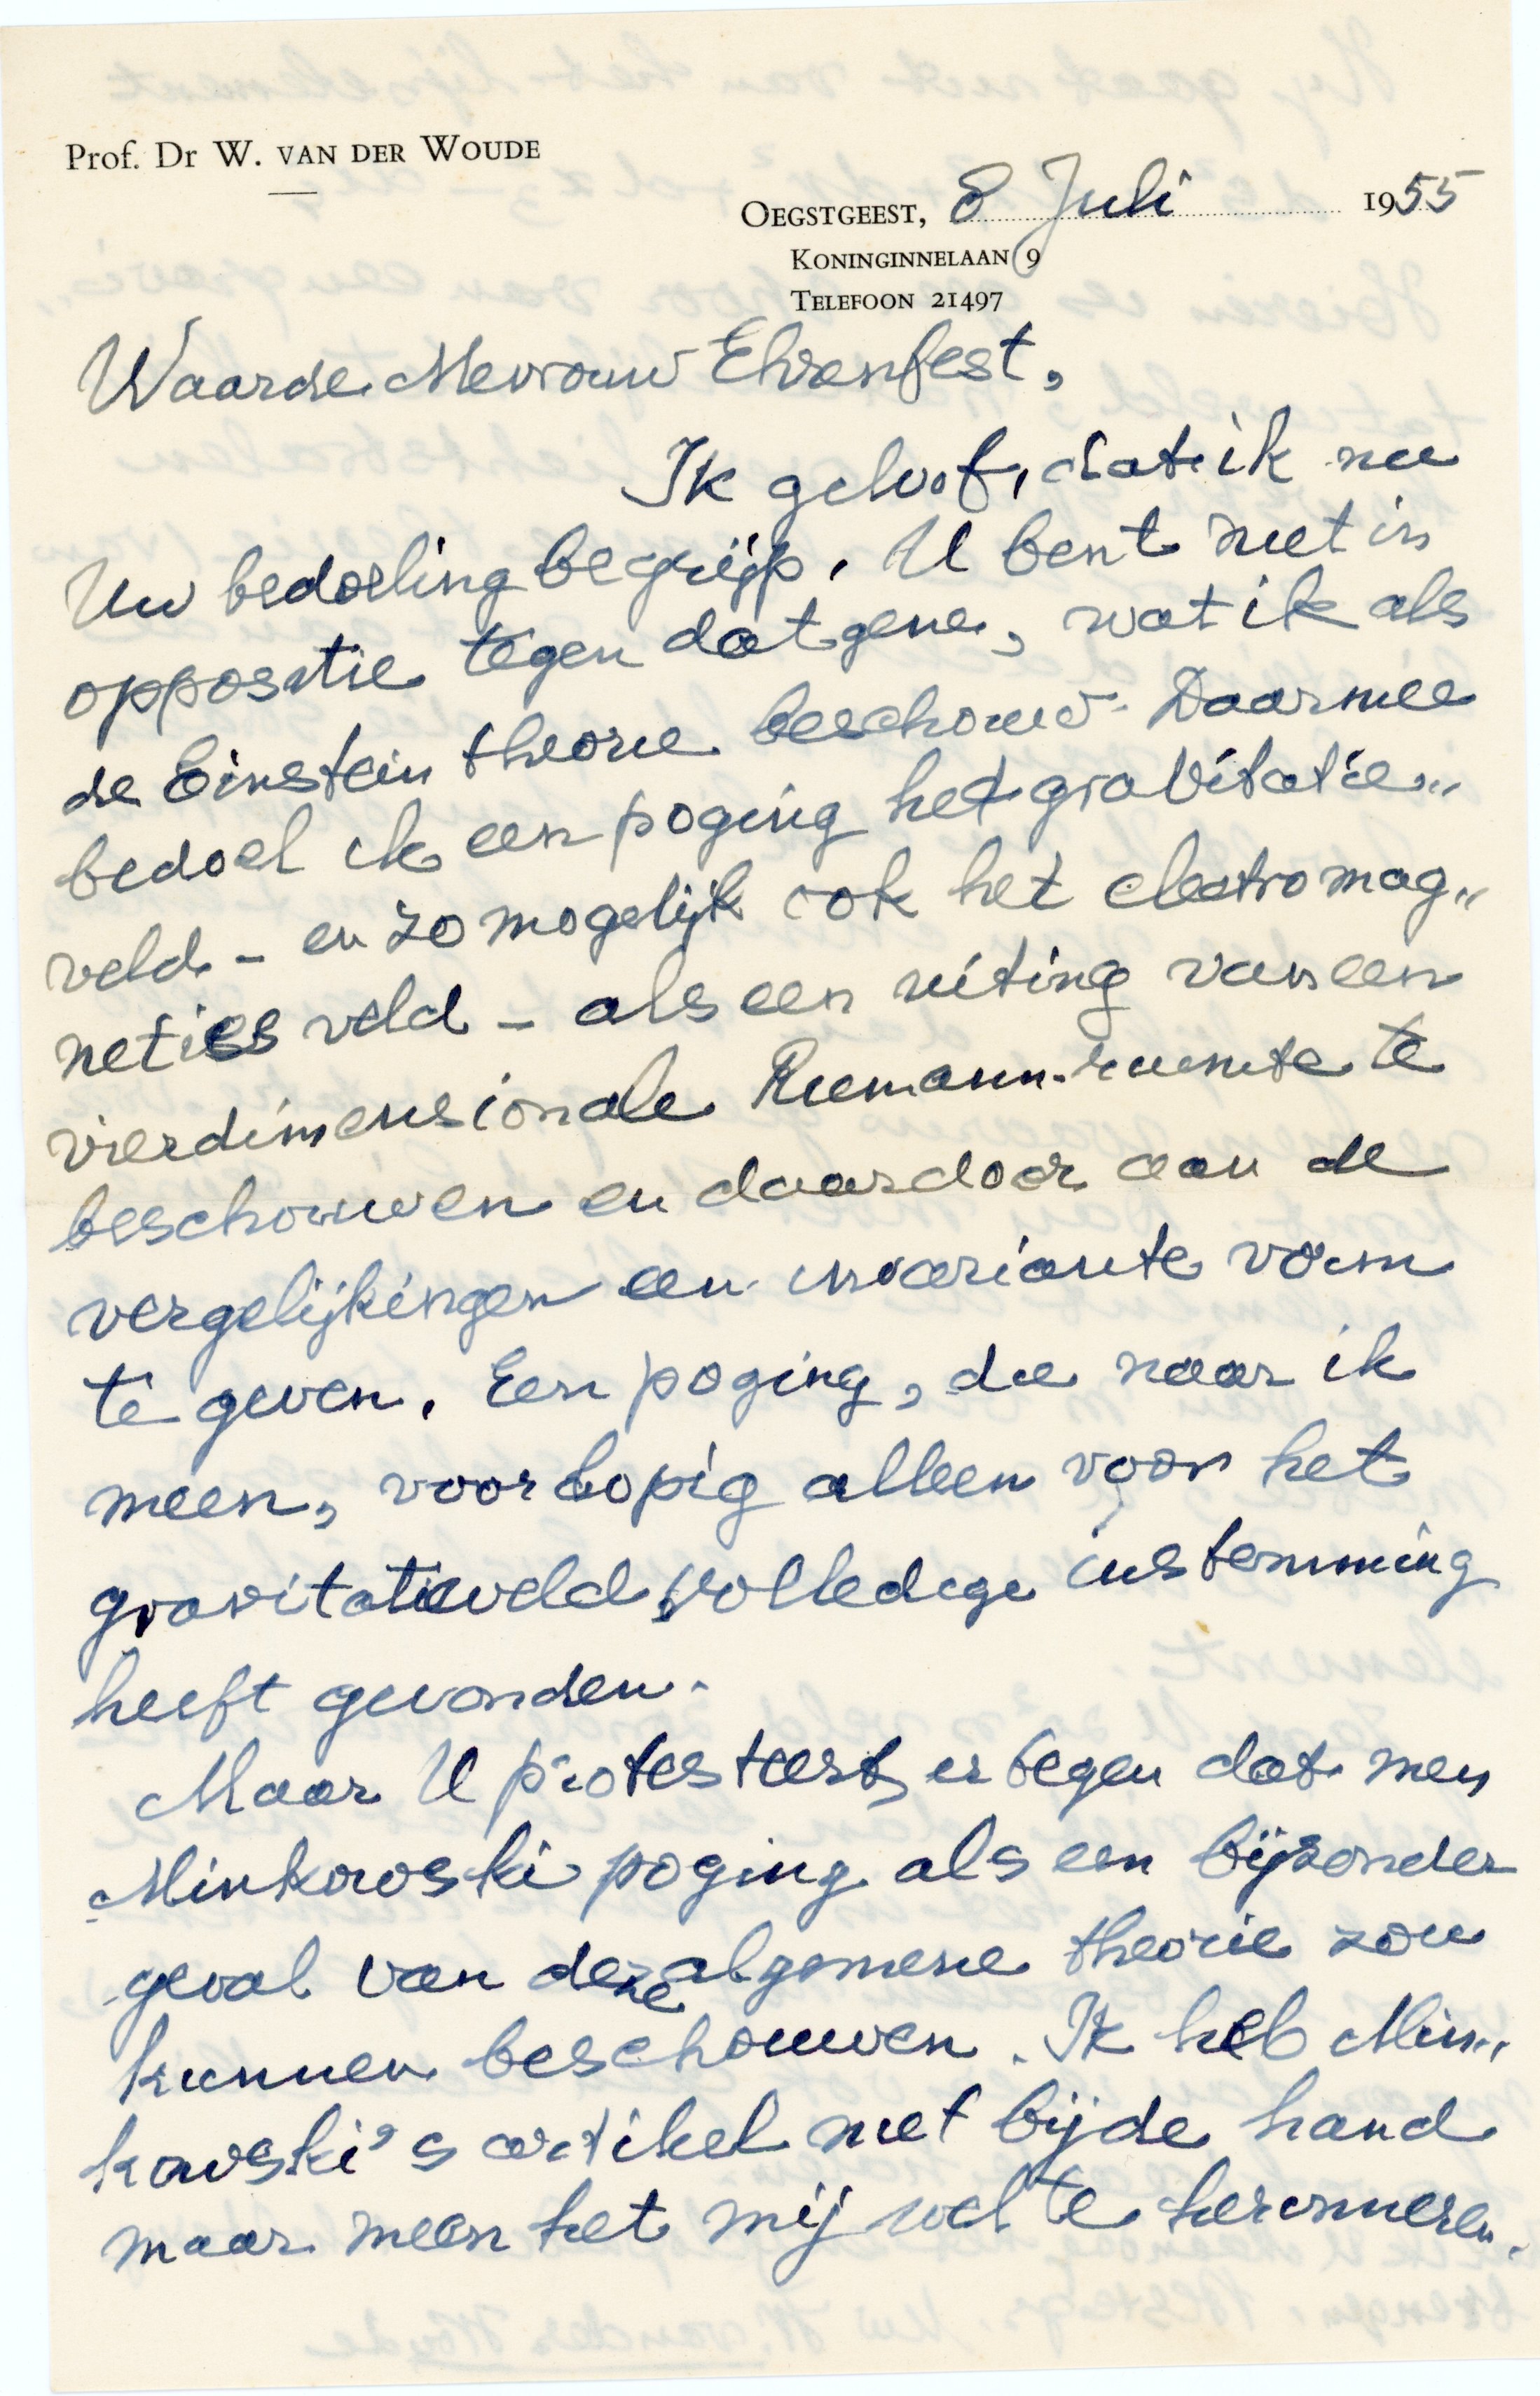 Prof. Dr W. VAN DER WOUDE
OEGSTGEEST, 8 Juli 1955
KONINGINNELAAN 9
TELEFOON 21497
Waarde Mevrouw Ehrenfest,
Ik geloof, dat ik nu
Uw bedoeling begrijp. U bent niet in
oppositie tegen datgene, wat ik als
de Einstein theorie beschouw. Daarmee
bedoel ik een poging het gravitatie„
veld - en zo mogelijk ook het electromag„
neties veld - als een uiting van een
vierdimensionale Riemann-ruimte te
beschouwen en daardoor aan de
vergelijkingen een invariante vorm
te geven. Een poging, die naar ik
meen, voorlopig alleen voor het
gravitatieveld volledige instemming
heeft gevonden.
Maar U protesteert er tegen dat men
Minkowski poging als een bijzonder
geval van deze algemene theorie zou
kunnen beschouwen. Ik heb Min„
kowski's artikel niet bij de hand
maar meen het mij wel te herinneren.